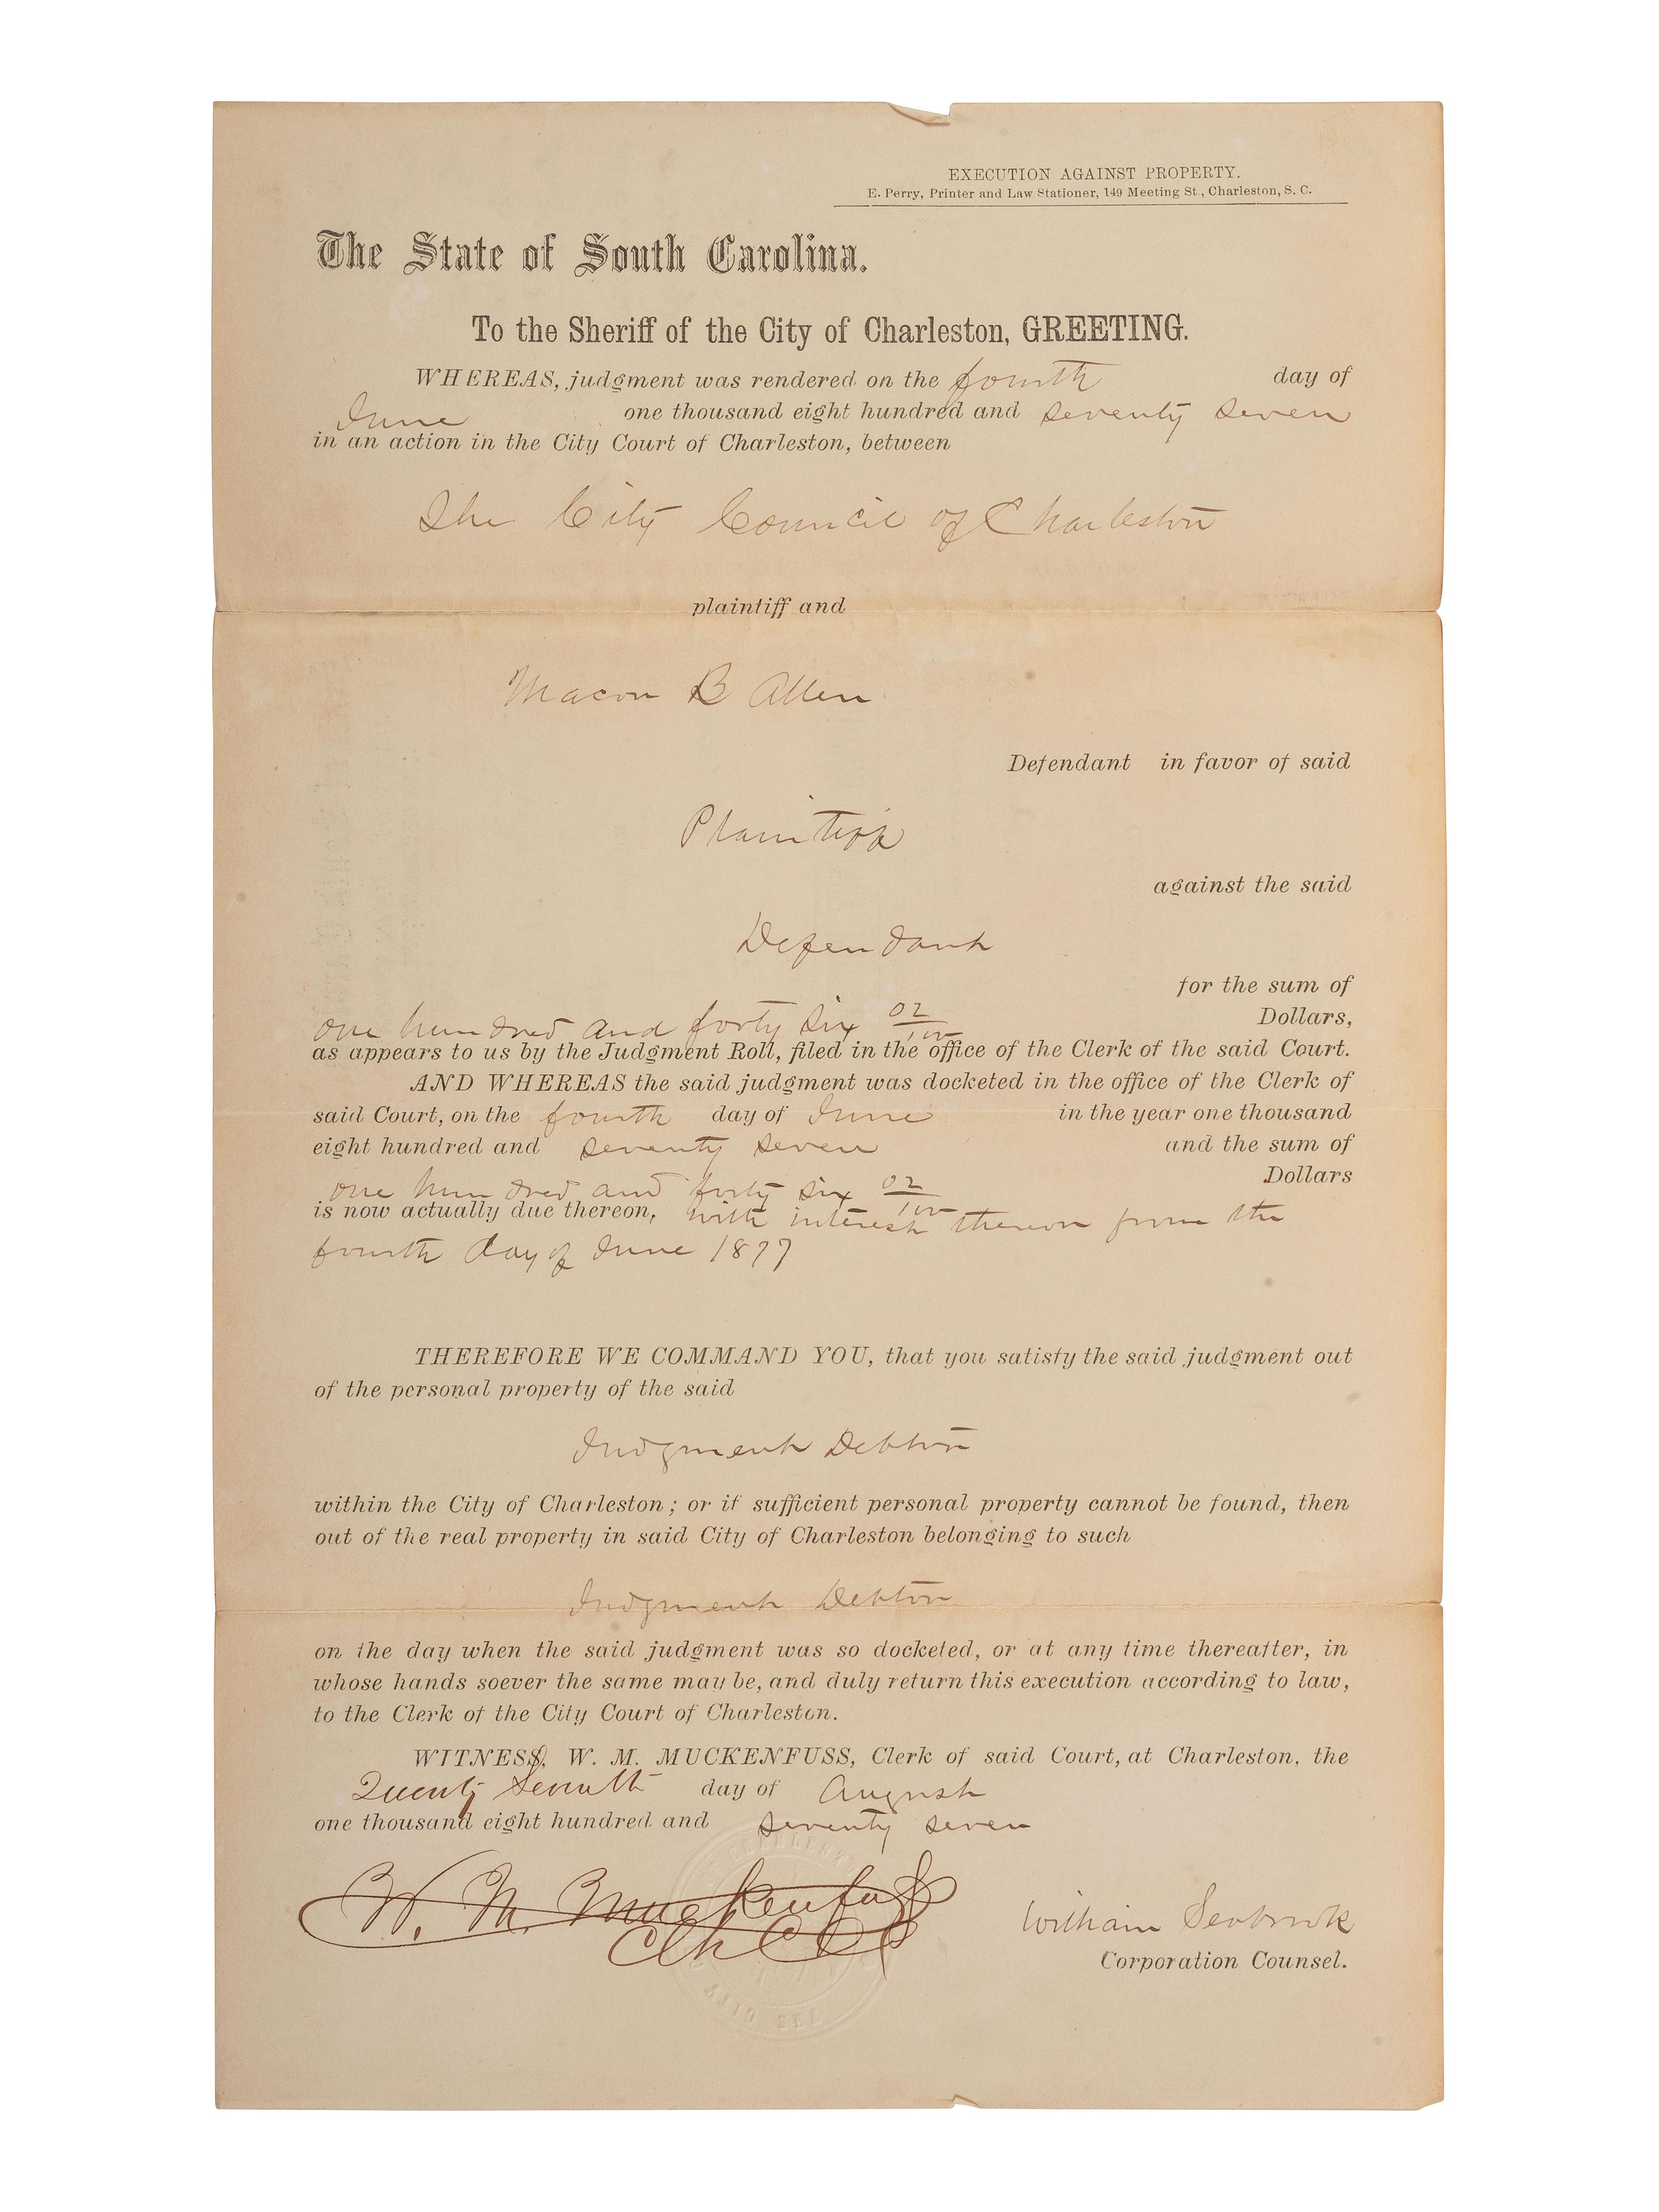 EXECUTION AGAINST PROPERTY.
E. Perry, Printer and Law Stationer, 149 Meeting St., Charleston, S. C.
The State of South Carolina.
To the Sheriff of the City of Charleston, GREETING.
WHEREAS, judgment was rendered on the fourth day of
June one thousand eight hundred and seventy seven
in an action in the City Court of Charleston, between
The City Council of Charleston
plaintiff and
Macon B Allen
Defendant in favor of said
Plaintiff
against the said
Defendant
for the sum of
one hundred and forty six 02/100 Dollars,
as appears to us by the Judgment Roll, filed in the office of the Clerk of the said Court.
AND WHEREAS the said judgment was docketed in the office of the Clerk of
said Court, on the fourth day of June in the year one thousand
eight hundred and seventy seven and the sum of
one hundred and forty six 02/100 Dollars
is now actually due thereon, with interest thereon from the
fourth day of June 1877
THEREFORE WE COMMAND YOU, that you satisfy the said judgment out
of the personal property of the said
Judgment Debtor
within the City of Charleston; or if sufficient personal property cannot be found, then
out of the real property in said City of Charleston belonging to such
Judgment Debtor
on the day when the said judgment was so docketed, or at any time thereafter, in
whose hands soever the same may be, and duly return this execution according to law,
to the Clerk of the City Court of Charleston.
WITNESS, W. M. MUCKENFUSS, Clerk of said Court, at Charleston, the
Twenty Seventh day of August
one thousand eight hundred and seventy seven
W. M. Muckenfuss
William Seabrook
Corporation Counsel.